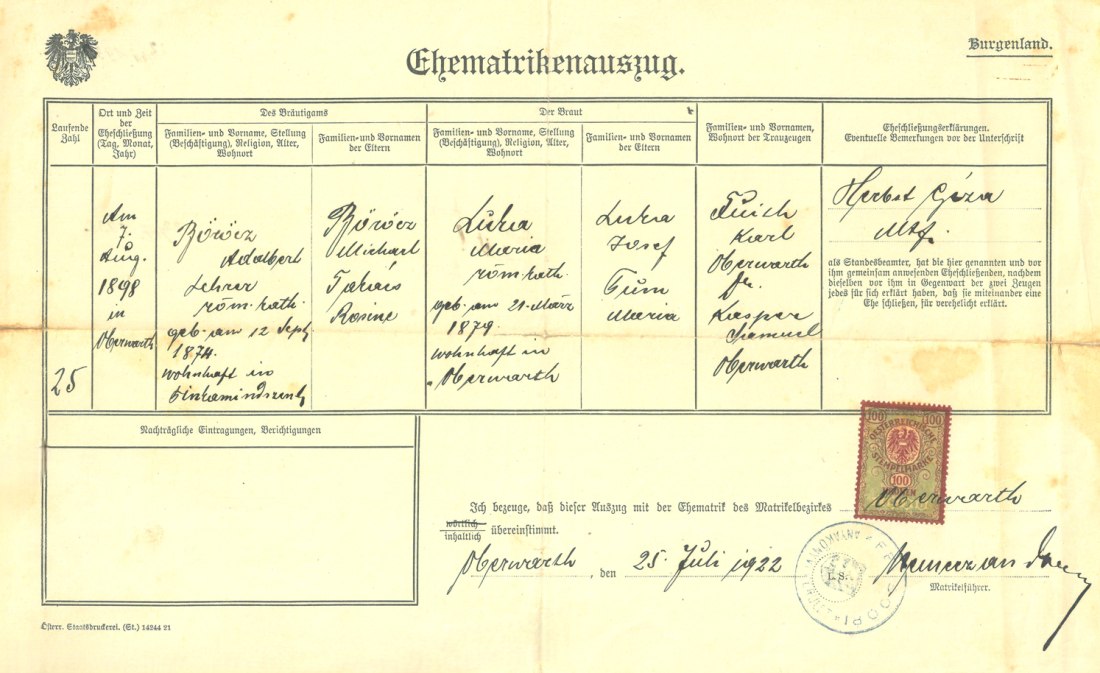 Burgenland.
Ehematrikenauszug.
Laufende Zahl
Ort und Zeit der Eheschließung (Tag, Monat, Jahr)
Des Bräutigams
Familien- und Vorname, Stellung (Beschäftigung), Religion, Alter, Wohnort
Familien- und Vornamen der Eltern
Der Braut
Familien- und Vorname, Stellung (Beschäftigung), Religion, Alter, Wohnort
Familien- und Vornamen der Eltern
Familien- und Vornamen, Wohnort der Trauzeugen
Eheschließungserklärungen.
Eventuelle Bemerkungen vor der Unterschrift
25
Am
7.
Aug.
1898
in
Oberwarth
Böröcz
Adalbert
Lehrer
röm. kath.
geb. am 12 Sept
1874.
wohnhaft in
Böröcz
Michael
Takáis
Rosine
Luka
Maria
röm. kath.
geb. am 21. März
1879.
wohnhaft in
Oberwarth
Luka
Josef
Maria
Karl
Oberwarth
Kasper
Samuel
Oberwarth
Herbst Géza
als Standesbeamter, hat die hier genannten und vor
ihm gemeinsam anwesenden Eheschließenden, nachdem
dieselben vor ihm in Gegenwart der zwei Zeugen
jedes für sich erklärt haben, daß sie miteinander eine
Ehe schließen, für verehelicht erklärt.
Nachträgliche Eintragungen, Berichtigungen
100 100
OESTERREICHISCHE
STEMPELMARKE
100
KRONEN
Ich bezeuge, daß dieser Auszug mit der Ehematrik des Matrikelbezirkes Oberwarth
wörtlich
inhaltlich
übereinstimmt.
Oberwarth, den 25. Juli 1922
Matrikelführer.
Österr. Staatsdruckerei. (St.) 14244 21